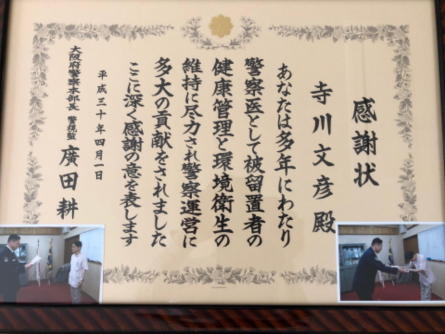 感謝状
寺川文彦殿
あなたは多年にわたり
警察医として被留置者の
健康管理と環境衛生の
維持に尽力され警察運営に
多大の貢献をされました
ここに深く感謝の意を表します
平成三十年四月一日
大阪府警察本部長 警視監 廣田耕一